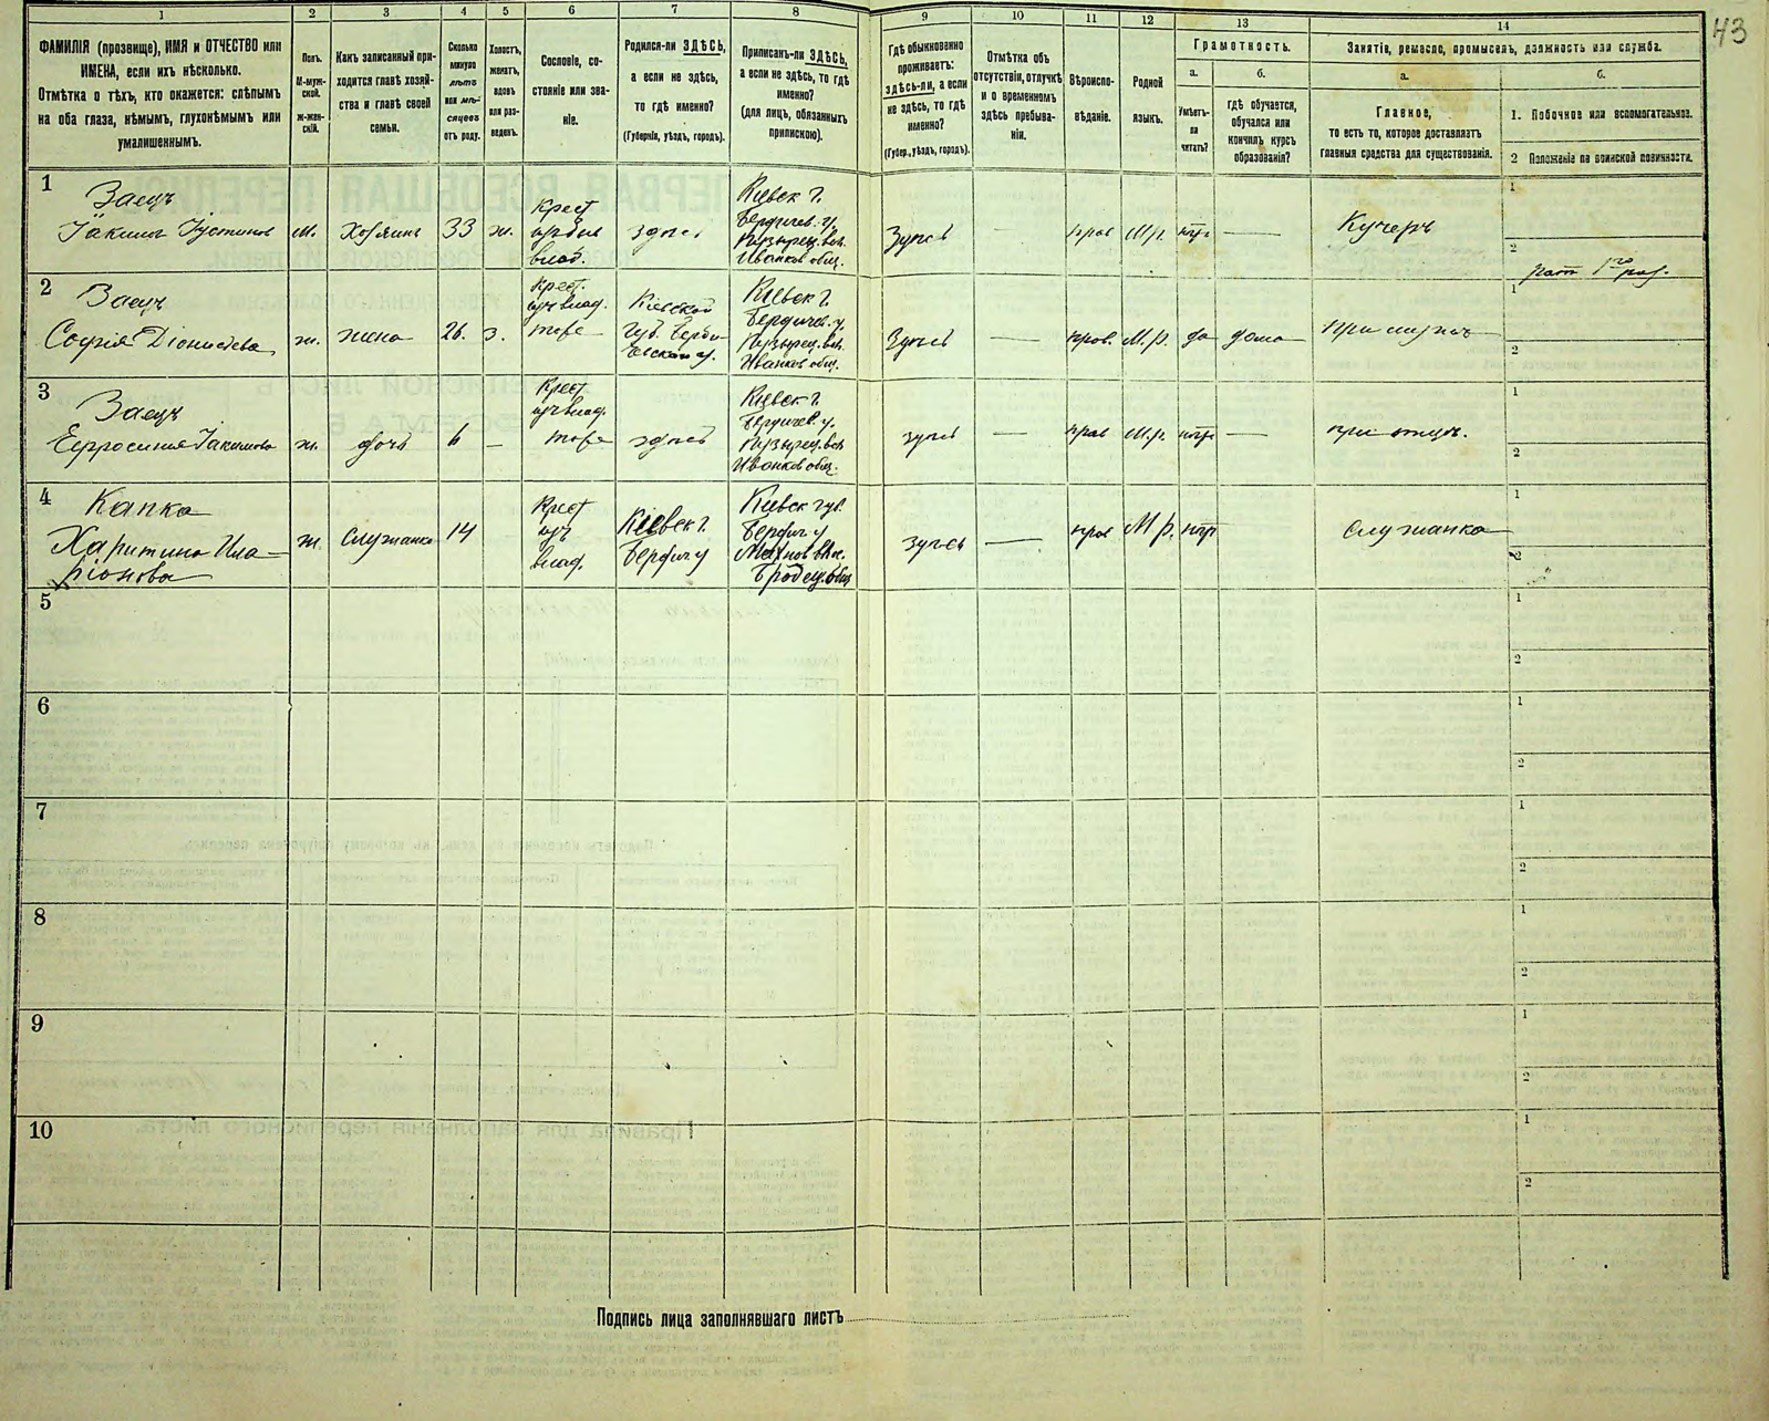 43
1 2 3 4 5 6 7 8 9 10 11 12 13 14
ФАМИЛІЯ (прозвище), ИМЯ и ОТЧЕСТВО или
ИМЕНА, если ихъ нѣсколько.
Отмѣтка о тѣхъ, кто окажется: слѣпымъ
на оба глаза, нѣмымъ, глухонѣмымъ или
умалишеннымъ.
Полъ.
М-муж-
ской.
Ж-жен-
скій.
Какъ записанный при-
ходится главѣ хозяй-
ства и главѣ своей
семьи.
Сколько
минуло
лѣтъ
или мѣ-
сяцевъ
отъ роду.
Холостъ,
женатъ,
вдовъ
или раз-
веденъ.
Сословіе, со-
стояніе или зва-
ніе.
Родился-ли ЗДѢСЬ,
а если не здѣсь,
то гдѣ именно?
(Губернія, уѣздъ, городъ).
Приписанъ-ли ЗДѢСЬ,
а если не здѣсь, то гдѣ
именно?
(для лицъ, обязанныхъ
припискою).
Гдѣ обыкновенно
проживаетъ:
здѣсь-ли, а если
не здѣсь, то гдѣ
именно?
(Губер., уѣздъ, городъ).
Отмѣтка объ
отсутствіи, отлучкѣ
и о временномъ
здѣсь пребыва-
ніи.
Вѣроиспо-
вѣданіе.
Родной
языкъ.
Грамотность.
а.
Умѣетъ-
ли
читать?
б.
гдѣ обучается,
обучался или
кончилъ курсъ
образованія?
Занятія, ремесло, промыселъ, должность или служба.
а.
Главное,
то есть то, которое доставляетъ
главныя средства для существованія.
б.
1. Побочное или вспомогательное.
2 Положеніе по воинской повинности.
1
Заецъ
Іакимъ Іустиновъ
м.
Хозяинъ
33
ж.
Крест
изъ
влад.
здѣсь
Кіевск г.
Бердичев. у.
Иванков общ.
Здѣсь
прав
М.р.
нѣтъ
—
Кучеръ
1
2
рат 1го раз.
2
Заецъ
Софія Діонисіева
ж.
жена
26.
з.
Крест.
изъ влад.
тоже
Кіевской
губ. Берди-
чевской у.
Кіевск г.
Бердичев. у.
Иванков общ.
Здѣсь
—
прав.
М.р.
да
дома
при мужѣ
1
2
3
Заецъ
Ефросинія Іакимова
ж.
дочь
6
—
Крест
изъ влад.
тоже
здѣсь
Кіевск г.
Бердичев. у.
Иванков общ.
здѣсь
—
прав
М.р.
нѣтъ
—
при отцѣ.
1
2
4
Капка
Харитина Ила-
ріонова
ж.
Служанка
14
Крест
изъ
влад.
Кіевск г.
Бердич. у
Кіевск губ.
Бердич. у
Махнов вол.
Бродец. общ
здѣсь
—
прав
М.р.
нѣтъ
служанка
1
2
5
1
2
6
1
2
7
1
2
8
1
2
9
1
2
10
1
2
Подпись лица заполнявшаго листъ